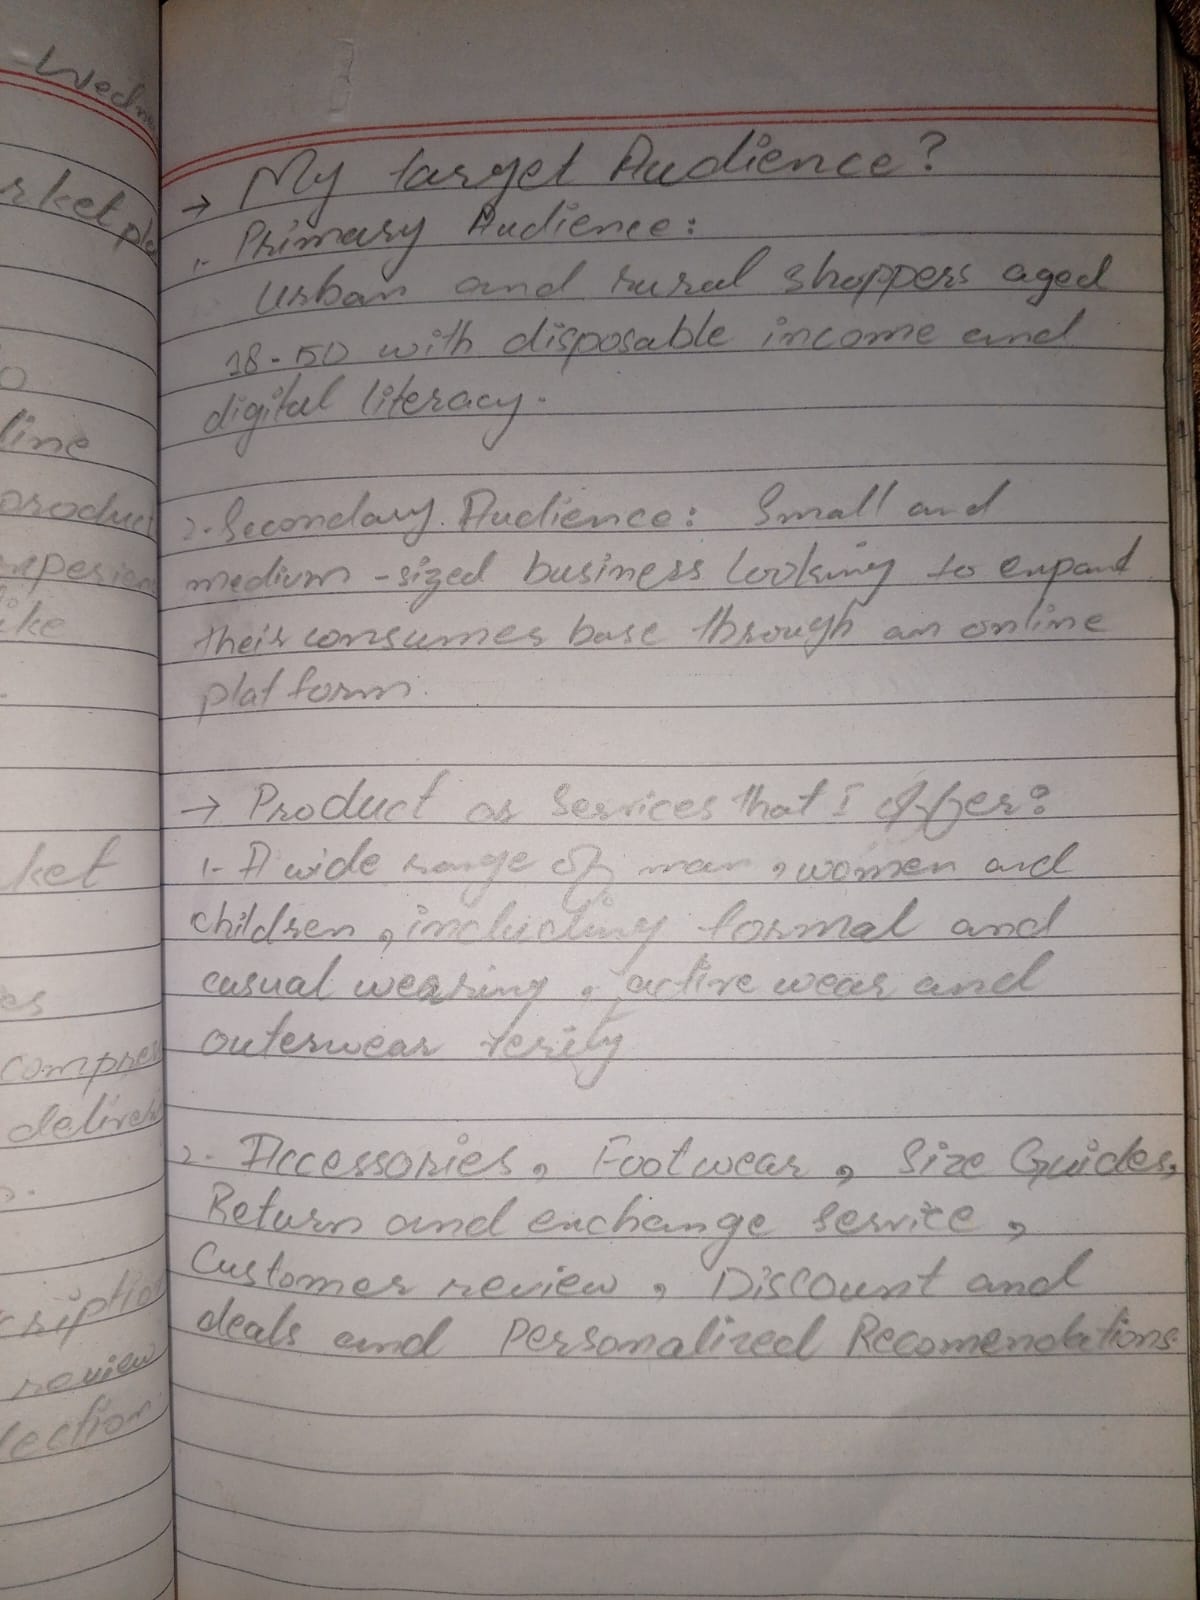 Wedn
rket pla
line
product
ike
ket
es
compres
delive
cription
review
lection
→ My target Audience?
1- Primary Audience:
Urban and rural shoppers aged
18-50 with disposable income and
digital literacy.
2- Secondary Audience: Small and
medium-sized business looking to expand
their consumer base through an online
platform.
→ Product or Services that I offer:
1- A wide range of man, women and
children, including formal and
casual wearing, active wear and
outerwear
2- Accessories, Footwear, Size Guides,
Return and exchange service,
Customer review, Discount and
deals and Personalized Recomendations